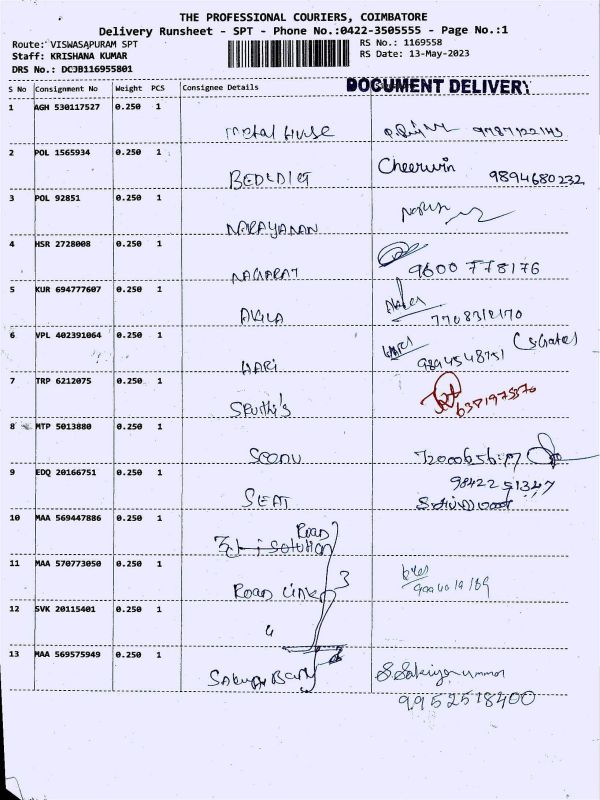 THE PROFESSIONAL COURIERS, COIMBATORE
Delivery Runsheet - SPT - Phone No.:0422-3505555 - Page No.:1
Route: VISWASAPURAM SPT
RS No.: 1169558
Staff: KRISHANA KUMAR
RS Date: 13-May-2023
DRS No.: DCJB116955801
DOCUMENT DELIVERY
S No Consignment No Weight PCS Consignee Details
1 AGH 530117527 0.250 1
metal House 9787122143
2 POL 1565934 0.250 1
Cheerwin
BEDEDICT 9894680232
3 POL 92851 0.250 1
NARAYANAN
4 HSR 2728008 0.250 1
NAGARAJ 9600 778176
5 KUR 694777607 0.250 1
AKILA 7708318170
6 VPL 402391064 0.250 1
HARI 9894548751
7 TRP 6212075 0.250 1
Sruthi's
8 MTP 5013880 0.250 1
SCODU
9 EDQ 20166751 0.250 1
9842251347
SEAT
10 MAA 569447886 0.250 1
Road
solution
11 MAA 570773050 0.250 1
Road Link 3
12 SVK 20115401 0.250 1
13 MAA 569575949 0.250 1
S. Sakiyarummal
9952518400